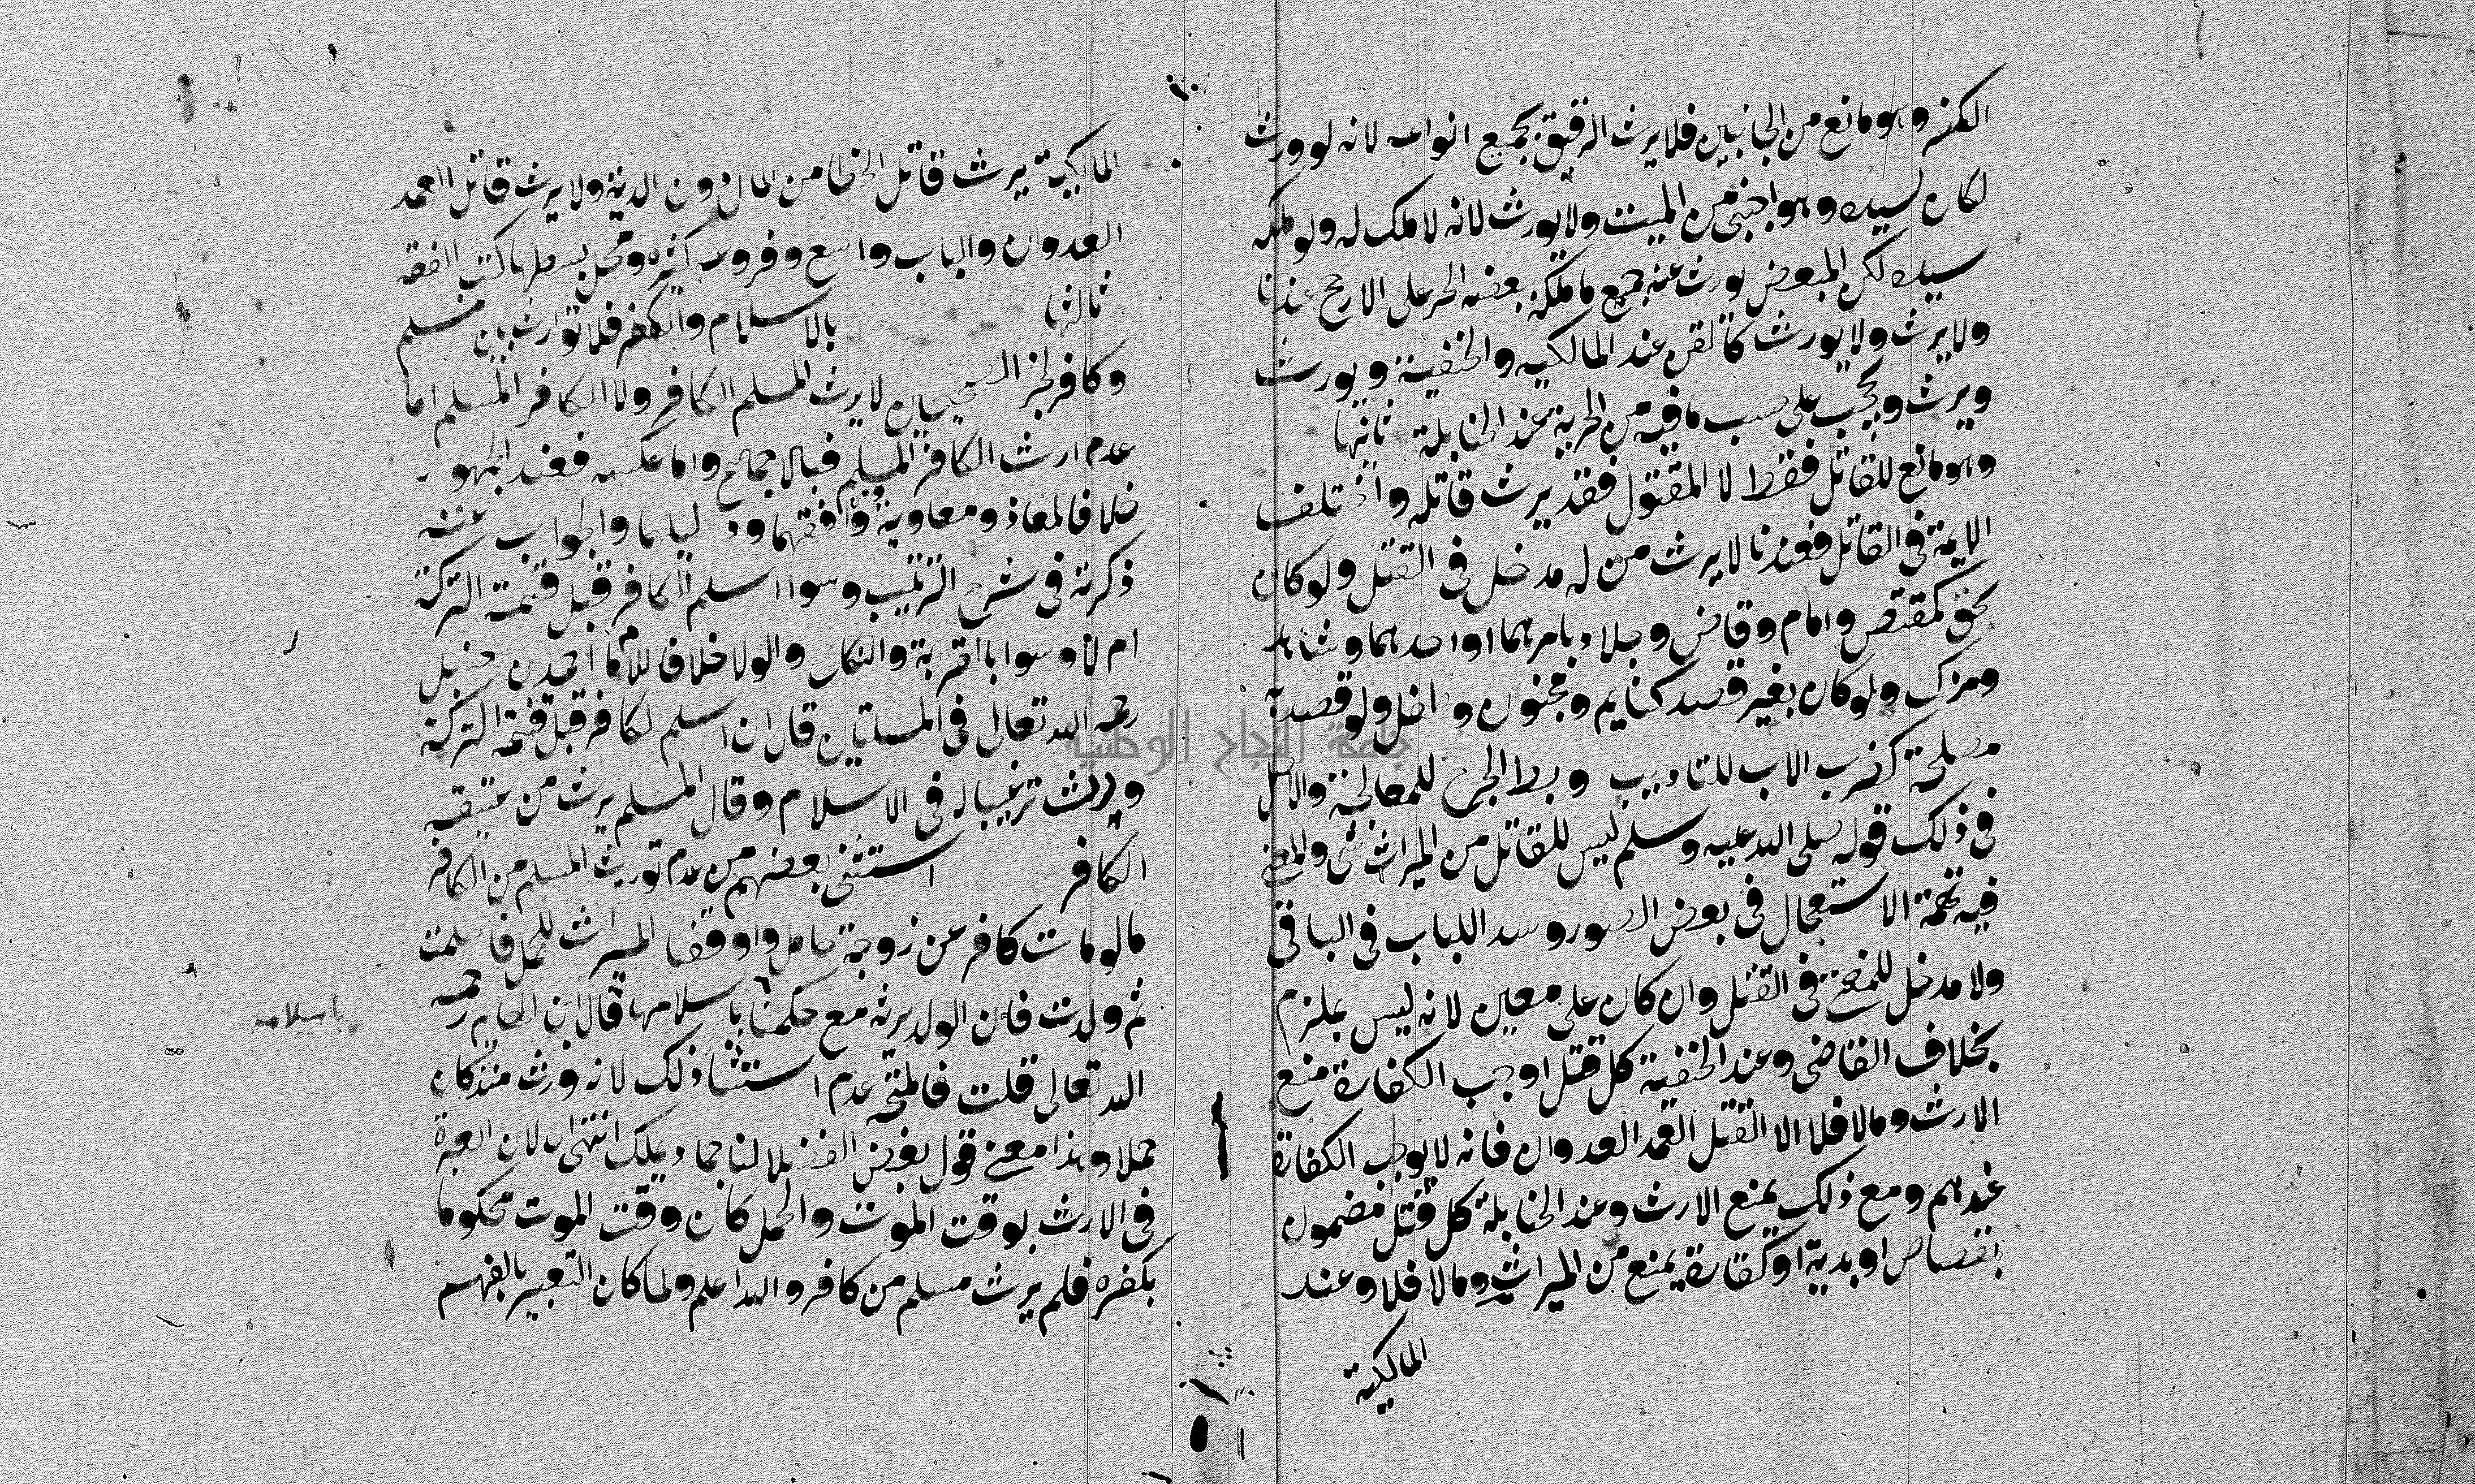 الكفر وهو مانع من الجانبين فلا يرث الرقيق بجميع انواعه لانه لو ورث
لكان لسيده وهو اجنبي من الميت ولا يورث لانه لا ملك له ولو ملكه
سيده لكن المبعض يورث عنه جميع ما ملكه ببعضه الحر على الارجح عندنا
ولا يرث ولا يورث كالقن عند المالكيه والحنفية ويورث
ويرث ويحجب على حسب ما فيه من الحرية عند الحنابلة ثانيها
وهو مانع للقاتل فقط لا المقتول فقد يرث قاتله واختلف
الايمة في القاتل فعندنا لا يرث من له مدخل في القتل ولو كان
بحق كمقتص وامام وقاض وجلاد بامرهما او احدهما وشاهد
ومزك ولو كان بغير قصد كنايم ومجنون وطفل ولو قصد به
مصلحة كضرب الاب للتاديب وبط الجرح للمعالجة والاصل
في ذلك قوله صلى الله عليه وسلم ليس للقاتل من الميراث شي والمعنى
فيه تهمة الاستعجال في بعض الصور وسد اللباب في الباقي
ولا مدخل للمفتي في القتل وان كان على معين لانه ليس بملزم
بخلاف القاضي وعند الحنفية كل قتل اوجب الكفارة منع
الارث وما لا فلا الا القتل العمد العدوان فانه لا يوجب الكفارة
عندهم ومع ذلك يمنع الارث وعند الحنابلة كل قتل مضمون
بقصاص او بدية او كفارة يمنع من الميراث وما لا فلا وعند
المالكية
المالكية يرث قاتل الخطا من المال دون الدية ولا يرث قاتل العمد
العدوان والباب واسع وفروعه كثيره ومحل بسطها كتب الفقه
ثالثها بالاسلام والكفر فلا توارث بين مسلم
وكافر لخبر الصحيحين لا يرث المسلم الكافر ولا الكافر المسلم اما
عدم ارث الكافر المسلم فبالاجماع واما عكسه فعند الجمهور
خلافا لمعاذ ومعاوية ووافقهما ودليلهما والجواب عنه
ذكرته في شرح الترتيب وسوا اسلم الكافر قبل قسمة التركة
ام لا وسوا بالقرابة والنكاح والولا خلافا للامام احمد بن حنبل
رحمه الله تعالى في المسئلتين قال ان اسلم الكافر قبل قسمة التركة
ورث ترغيبا له في الاسلام وقال المسلم يرث من عتيقه
الكافر استثنى بعضهم من عدم توريث المسلم من الكافر
ما لو مات كافر عن زوجة حامل واوقفنا الميراث للحمل فاسلمت
ثم ولدت فان الولد يرثه مع حكمنا باسلامها قال ابن الهايم رحمه
باسلامه
الله تعالى قلت فالمتجه عدم استثنا ذلك لانه ورث منذ كان
حملا وهذا معنى قول بعض الفضلا لنا جماد يملك انتهى اي لان العبرة
في الارث بوقت الموت والحمل كان وقت الموت محكوما
بكفره فلم يرث مسلم من كافر والله اعلم ولما كان التعبير بالفهم
جامعة النجاح الوطنية